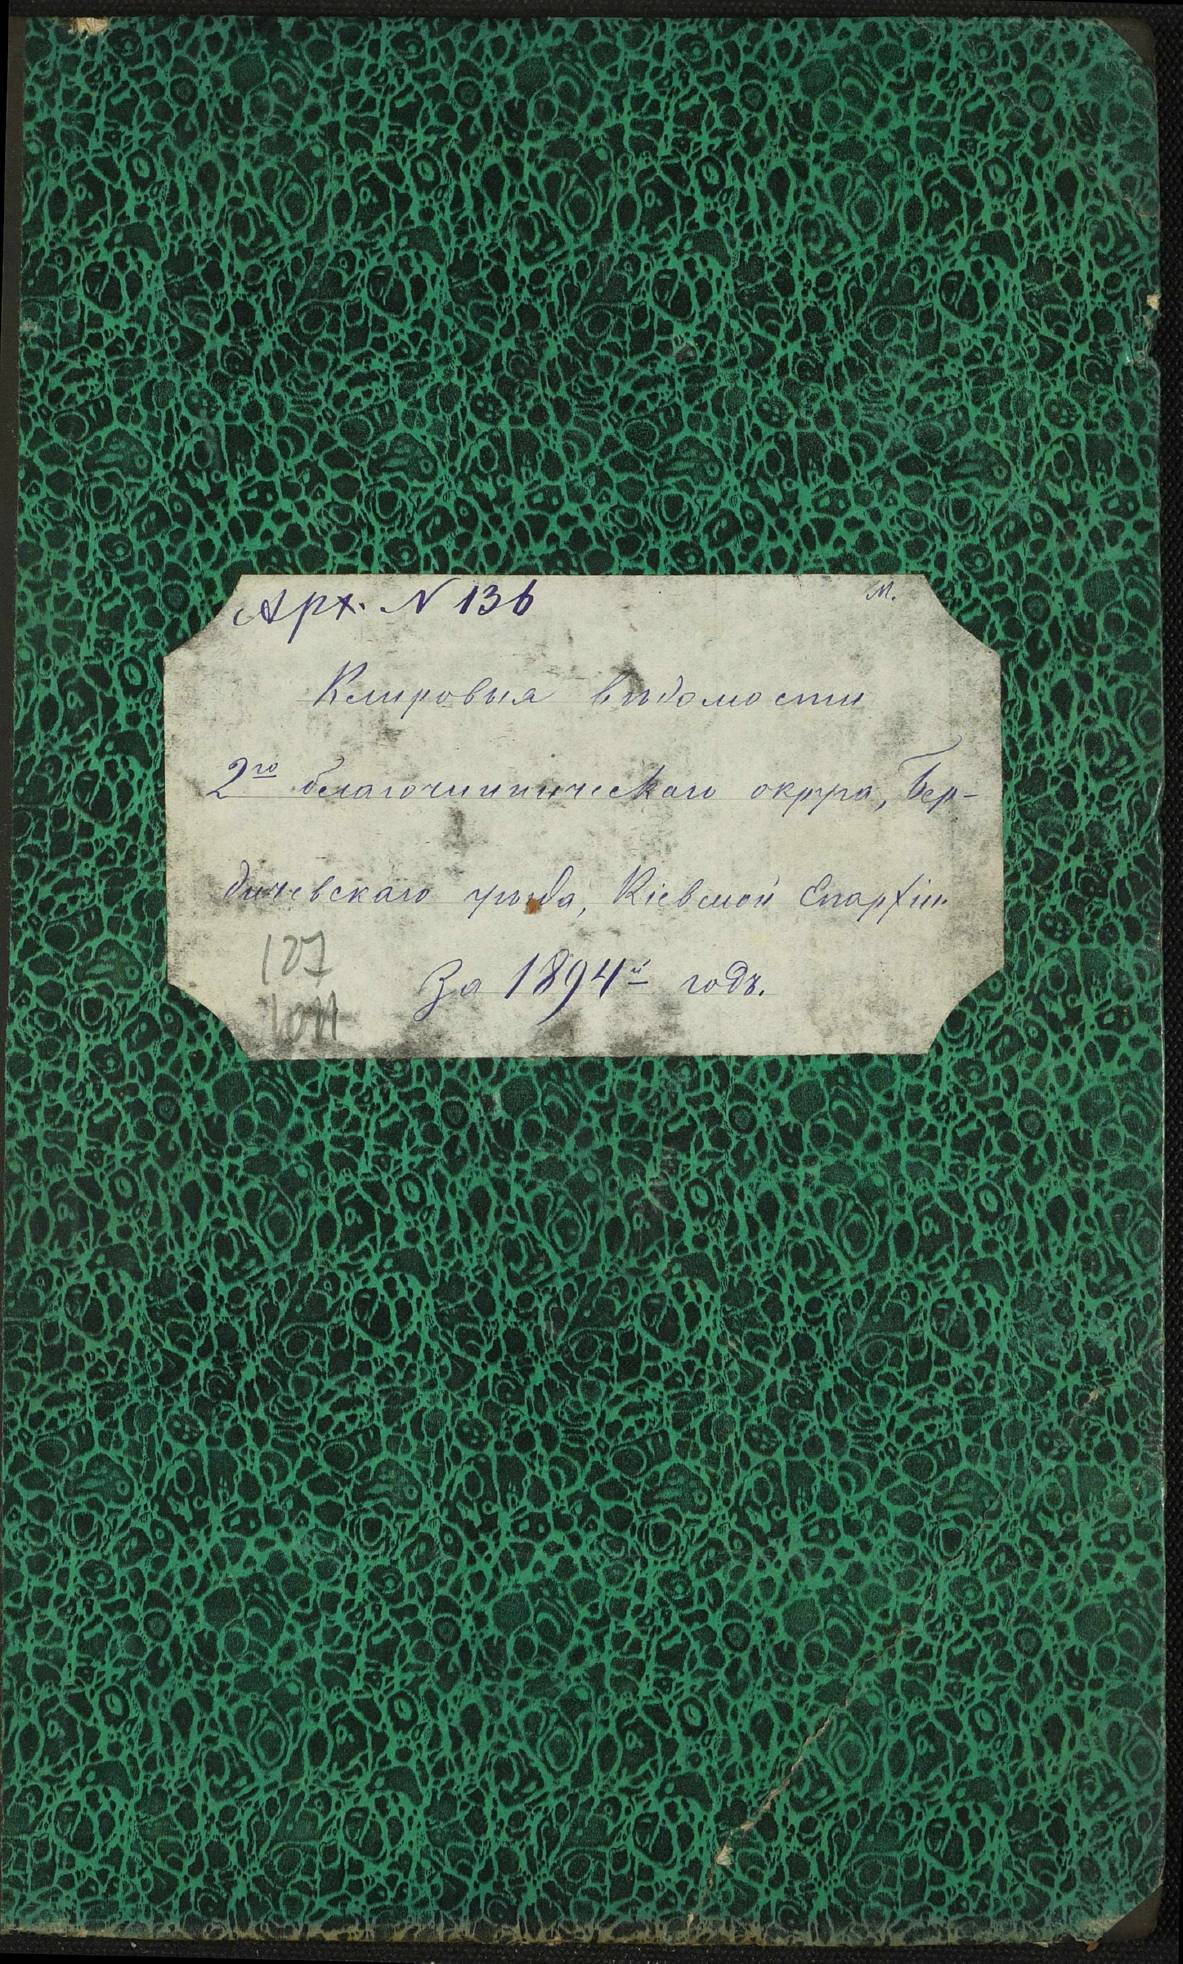 Арх. N 136
М.
Клировыя вѣдомости
2го благочинническаго округа, Бер-
дичевскаго уѣзда, Кіевской Епархіи
За 1894й годъ.
127